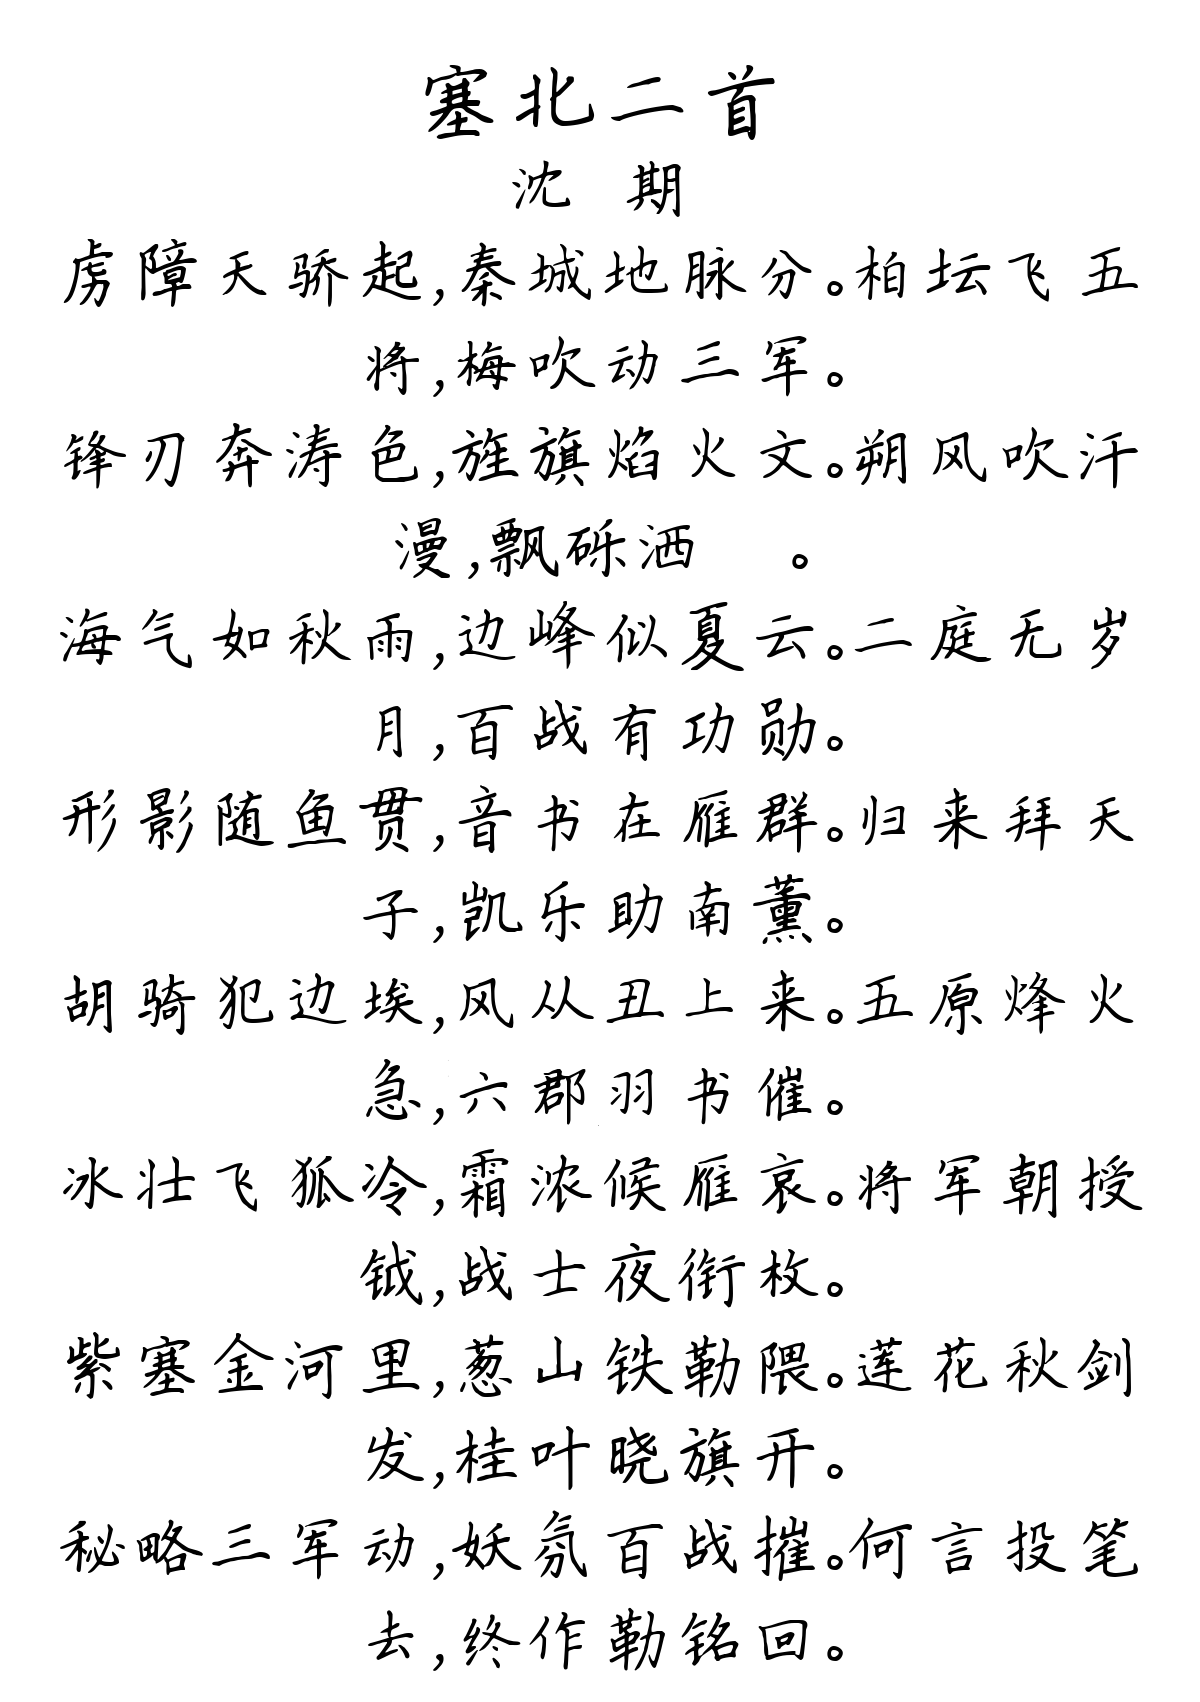 塞北二首
沈 期
虏障天骄起,秦城地脉分。柏坛飞五
将,梅吹动三军。
锋刃奔涛色,旌旗焰火文。朔风吹汗
漫,飘砾洒 。
海气如秋雨,边峰似夏云。二庭无岁
月,百战有功勋。
形影随鱼贯,音书在雁群。归来拜天
子,凯乐助南薰。
胡骑犯边埃,风从丑上来。五原烽火
急,六郡羽书催。
冰壮飞狐冷,霜浓候雁哀。将军朝授
钺,战士夜衔枚。
紫塞金河里,葱山铁勒隈。莲花秋剑
发,桂叶晓旗开。
秘略三军动,妖氛百战摧。何言投笔
去,终作勒铭回。